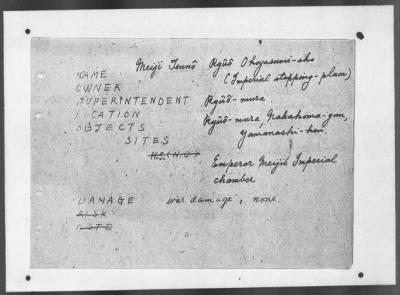 NAME Meiji Tennō Ryūō Okoyasumi-sho
(Imperial stopping-place)
OWNER
SUPERINTENDENT Ryūō-mura.
LOCATION Ryūō-mura, Nakakoma-gun,
Yamanashi-ken.
OBJECTS
SITES
Emperor Meiji's Imperial
chamber
DAMAGE war damage, none.
RISK
NOTE